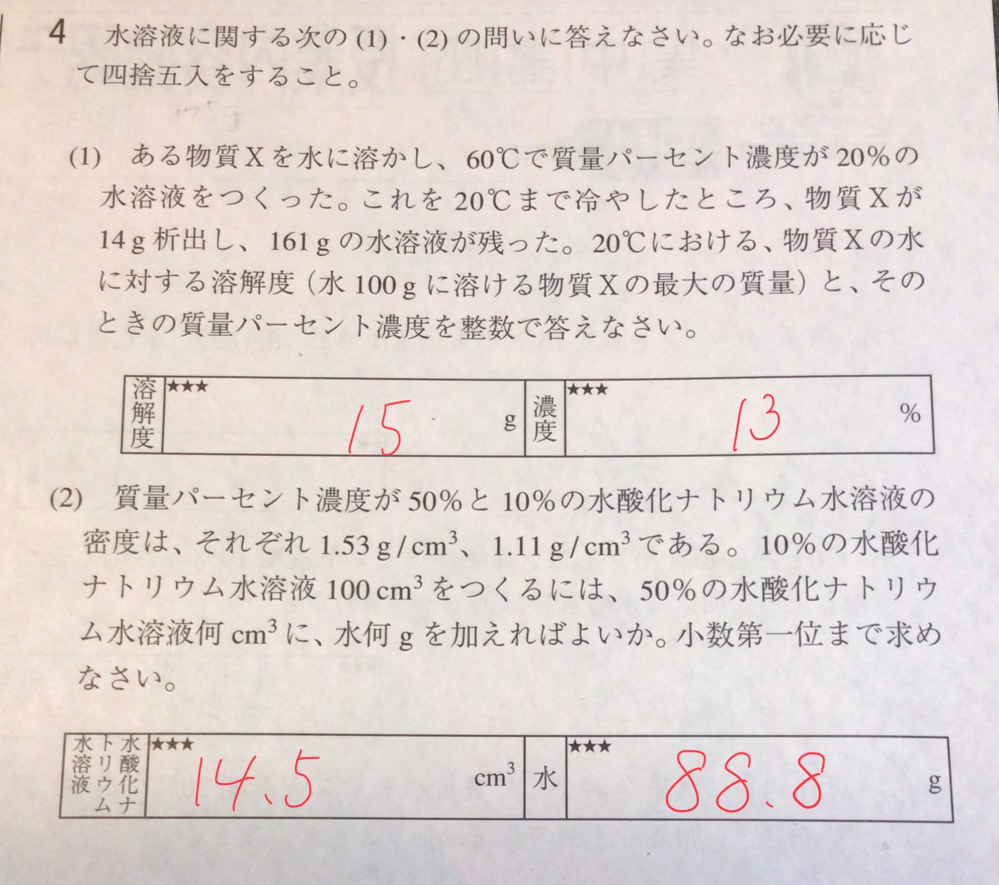 4 水溶液に関する次の (1)・(2) の問いに答えなさい。なお必要に応じ
て四捨五入をすること。
(1) ある物質Xを水に溶かし、60℃で質量パーセント濃度が20%の
水溶液をつくった。これを20℃まで冷やしたところ、物質Xが
14g析出し、161gの水溶液が残った。20℃における、物質Xの水
に対する溶解度（水100gに溶ける物質Xの最大の質量）と、その
ときの質量パーセント濃度を整数で答えなさい。
溶解度 ★★★ 15 g 濃度 ★★★ 13 %
(2) 質量パーセント濃度が50%と10%の水酸化ナトリウム水溶液の
密度は、それぞれ1.53 g/cm³、1.11 g/cm³である。10%の水酸化
ナトリウム水溶液100 cm³をつくるには、50%の水酸化ナトリウ
ム水溶液何cm³に、水何gを加えればよいか。小数第一位まで求め
なさい。
水酸化ナトリウム水溶液 ★★★ 14.5 cm³ 水 ★★★ 88.8 g